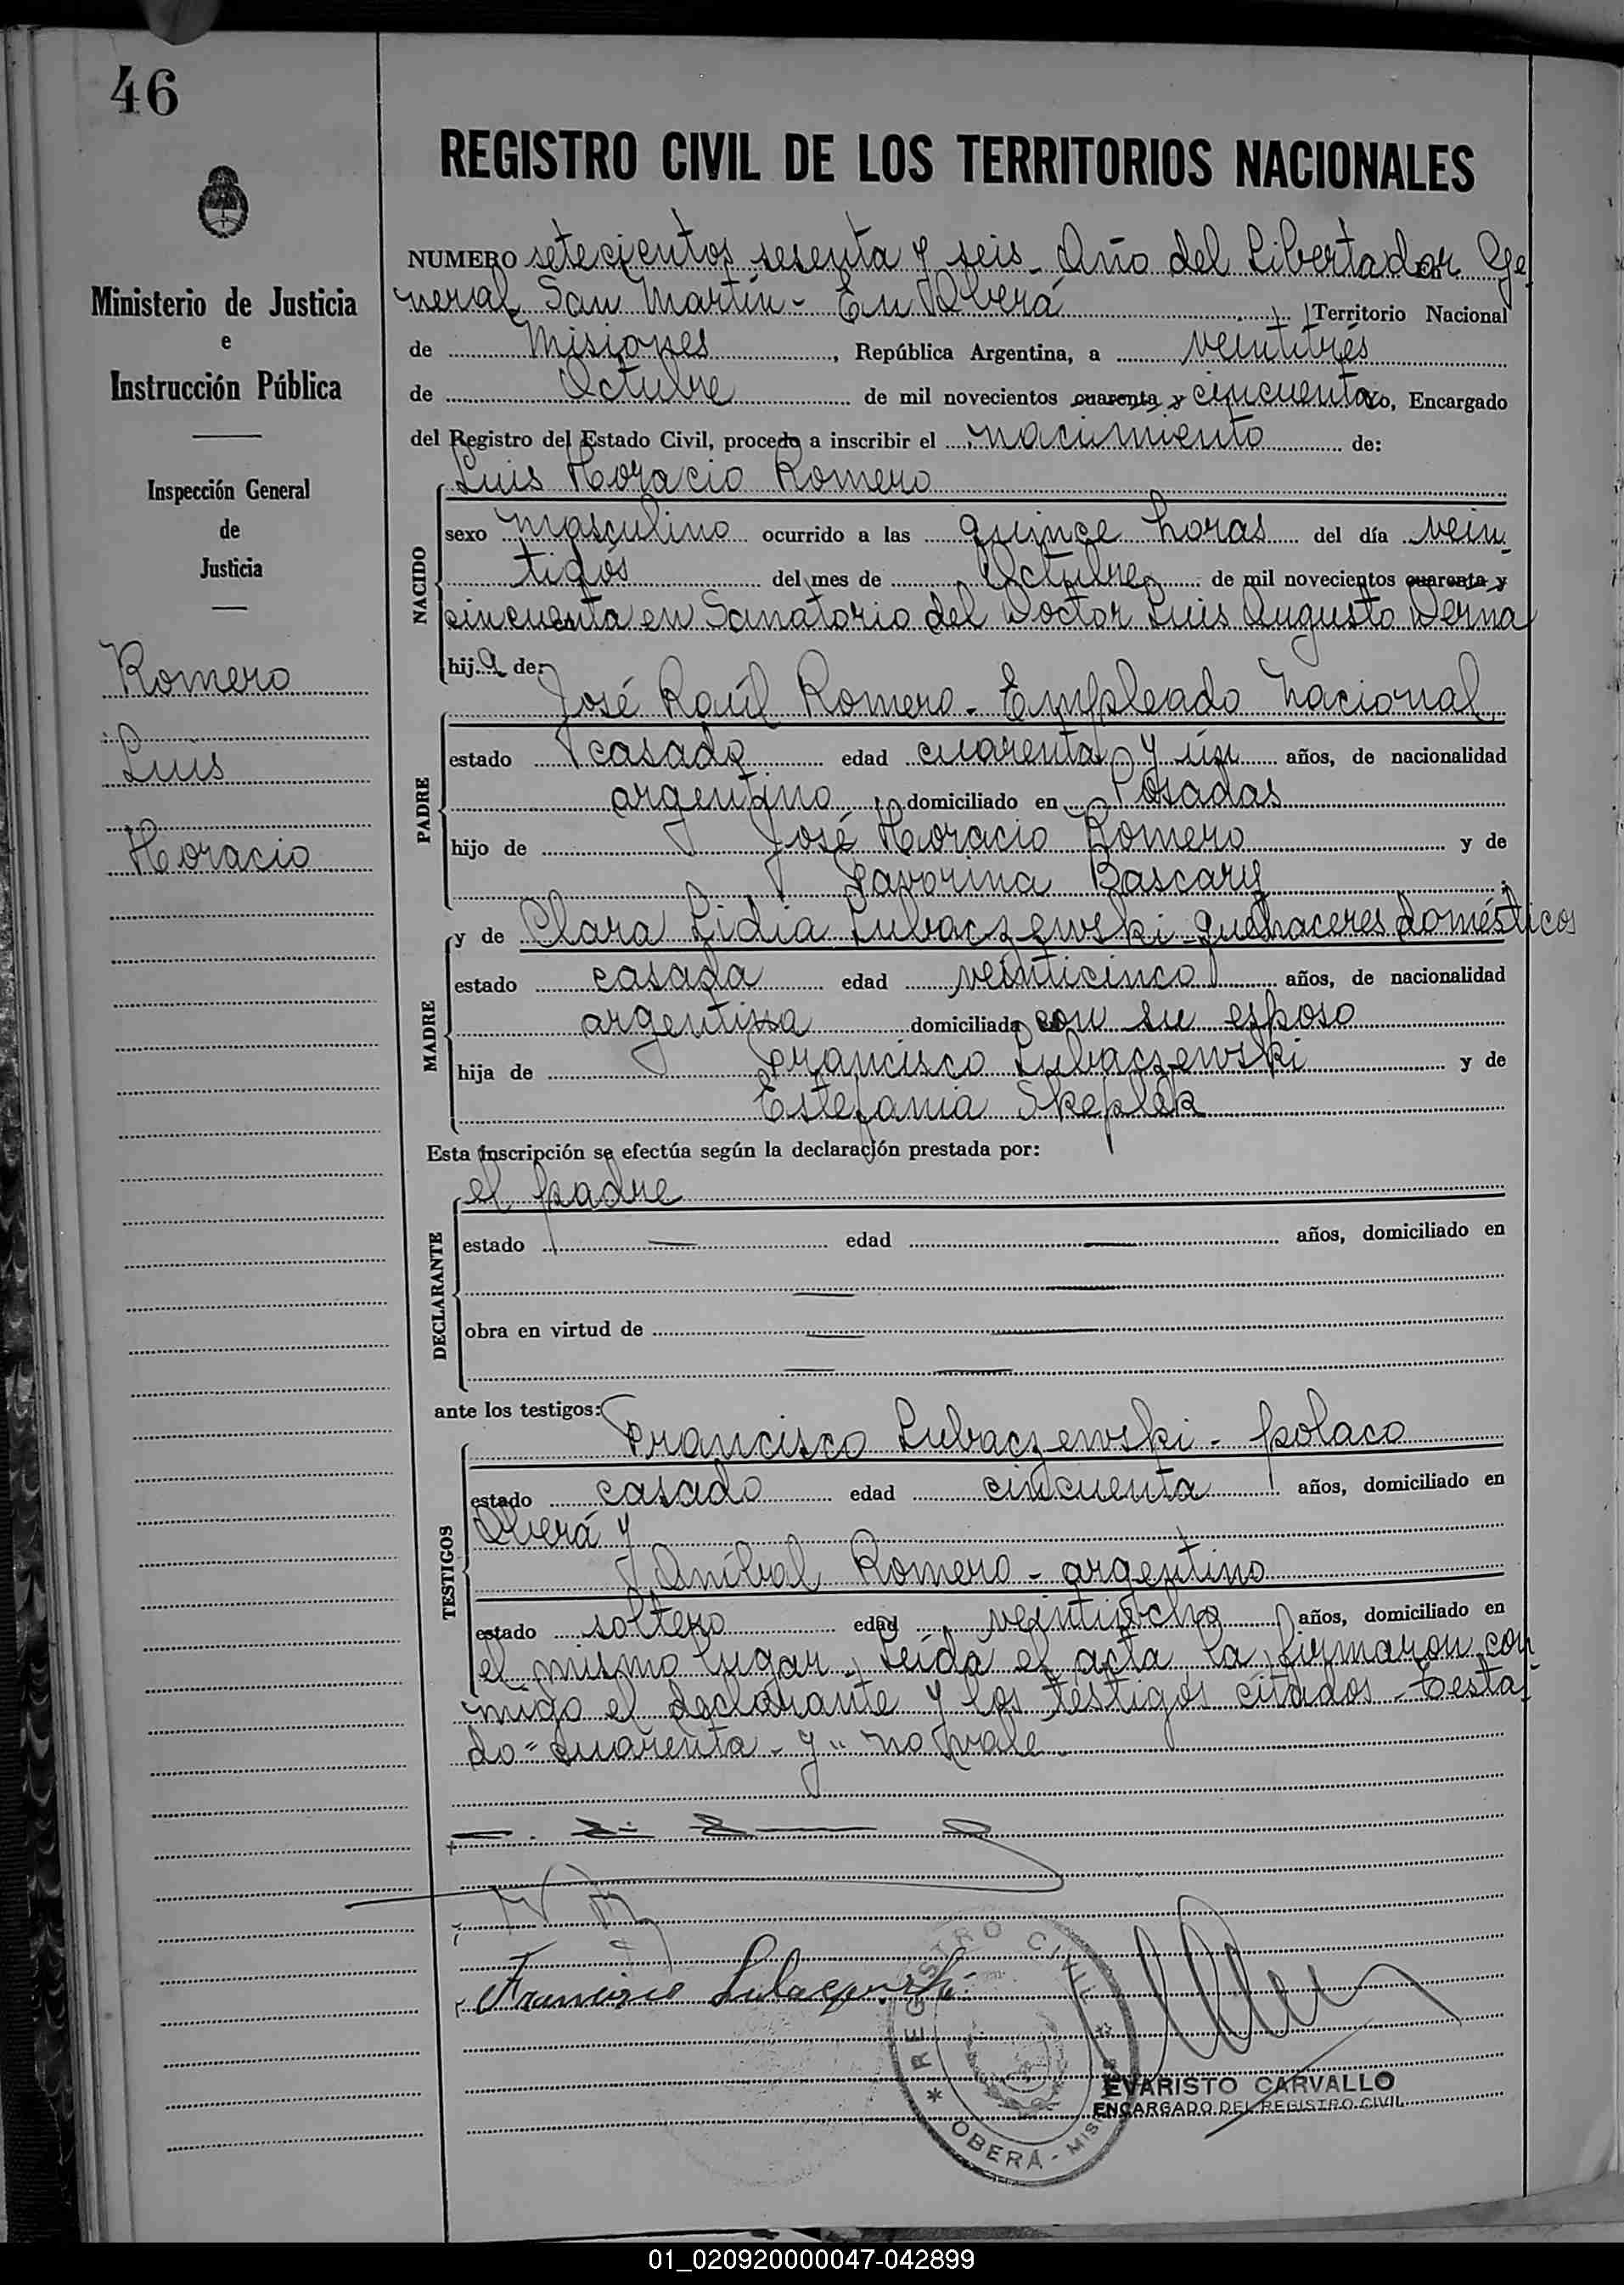 46
REGISTRO CIVIL DE LOS TERRITORIOS NACIONALES
Ministerio de Justicia
e
Instrucción Pública
Inspección General
de
Justicia
Romero
Luis
Horacio
NUMERO setecientos sesenta y seis - Año del Libertador Ge
neral San Martín - En Oberá Territorio Nacional
de Misiones, República Argentina, a veintitrés
de Octubre de mil novecientos cuarenta y cincuenta Yo, Encargado
del Registro del Estado Civil, procedo a inscribir el nacimiento de:
Luis Horacio Romero
NACIDO
sexo masculino ocurrido a las quince horas del día vein
tidós del mes de Octubre de mil novecientos cuarenta y
cincuenta en Sanatorio del Doctor Luis Augusto Derna
hijo de:
José Raúl Romero - Empleado Nacional
PADRE
estado casado edad cuarenta y ún años, de nacionalidad
argentino domiciliado en Posadas
hijo de José Horacio Romero y de
Savorina Bascary
y de Clara Lidia Lubaczewski - quehaceres domésticos
MADRE
estado casada edad veinticinco años, de nacionalidad
argentina domiciliada con su esposo
hija de Francisco Lubaczewski y de
Estefania Skeplek
Esta inscripción se efectúa según la declaración prestada por:
el padre
DECLARANTE
estado — edad — años, domiciliado en
obra en virtud de —
ante los testigos:
Francisco Lubaczewski - polaco
TESTIGOS
estado casado edad cincuenta años, domiciliado en
Oberá y
Aníbal Romero - argentino
estado soltero edad veintiocho años, domiciliado en
el mismo lugar - Leída el acta la firmaron con
migo el declarante y los testigos citados - Testa
do "cuarenta - y" no vale
Francisco Lubaczewski
REGISTRO CIVIL
OBERÁ - MISIONES
EVARISTO CARVALLO
ENCARGADO DEL REGISTRO CIVIL
01_020920000047-042899